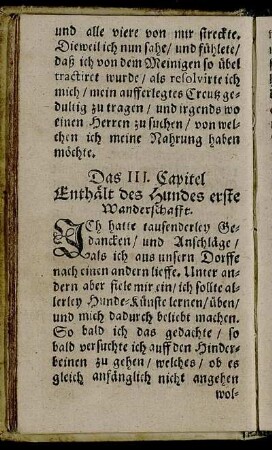 und alle viere von mir streckte.
Dieweil ich nun sahe/ und fühlete/
daß ich von dem Meinigen so übel
tractiret wurde/ als resolvirte ich
mich/ mein aufferlegtes Creutz ge-
dultig zu tragen/ und irgends wo
einen Herren zu suchen/ von wel-
chen ich meine Nahrung haben
möchte.
Das III. Capitel
Enthält des Hundes erste
Wanderschafft.
ICh hatte tausenderley Ge-
dancken/ und Anschläge/
als ich aus unsern Dorffe
nach einen andern lieffe. Unter an-
dern aber fiele mir ein/ ich solte al-
lerley Hunde-Künste lernen/ üben/
und mich dadurch beliebt machen.
So bald ich das gedachte/ so
bald versuchte ich auff den Hinder-
beinen zu gehen/ welches/ ob es
gleich anfänglich nicht angehen
wol-